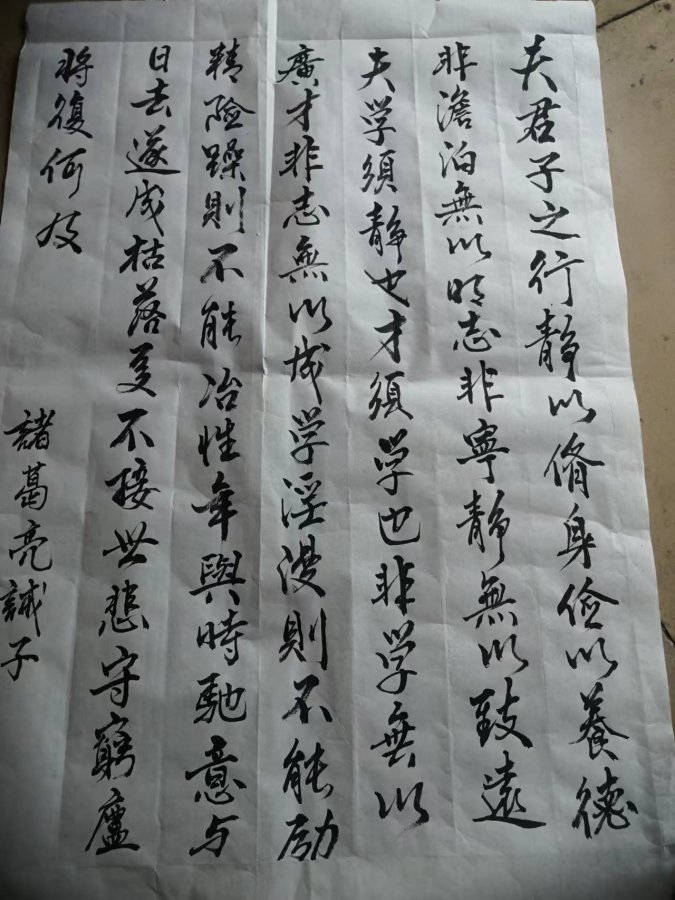 夫君子之行静以脩身俭以養德
非澹泊無以明志非寧静無以致遠
夫学須静也才須学也非学無以
廣才非志無以成学淫漫則不能励
精险躁則不能冶性年與時馳意与
日去遂成枯落多不接世悲守窮廬
将復何及
諸葛亮誡子